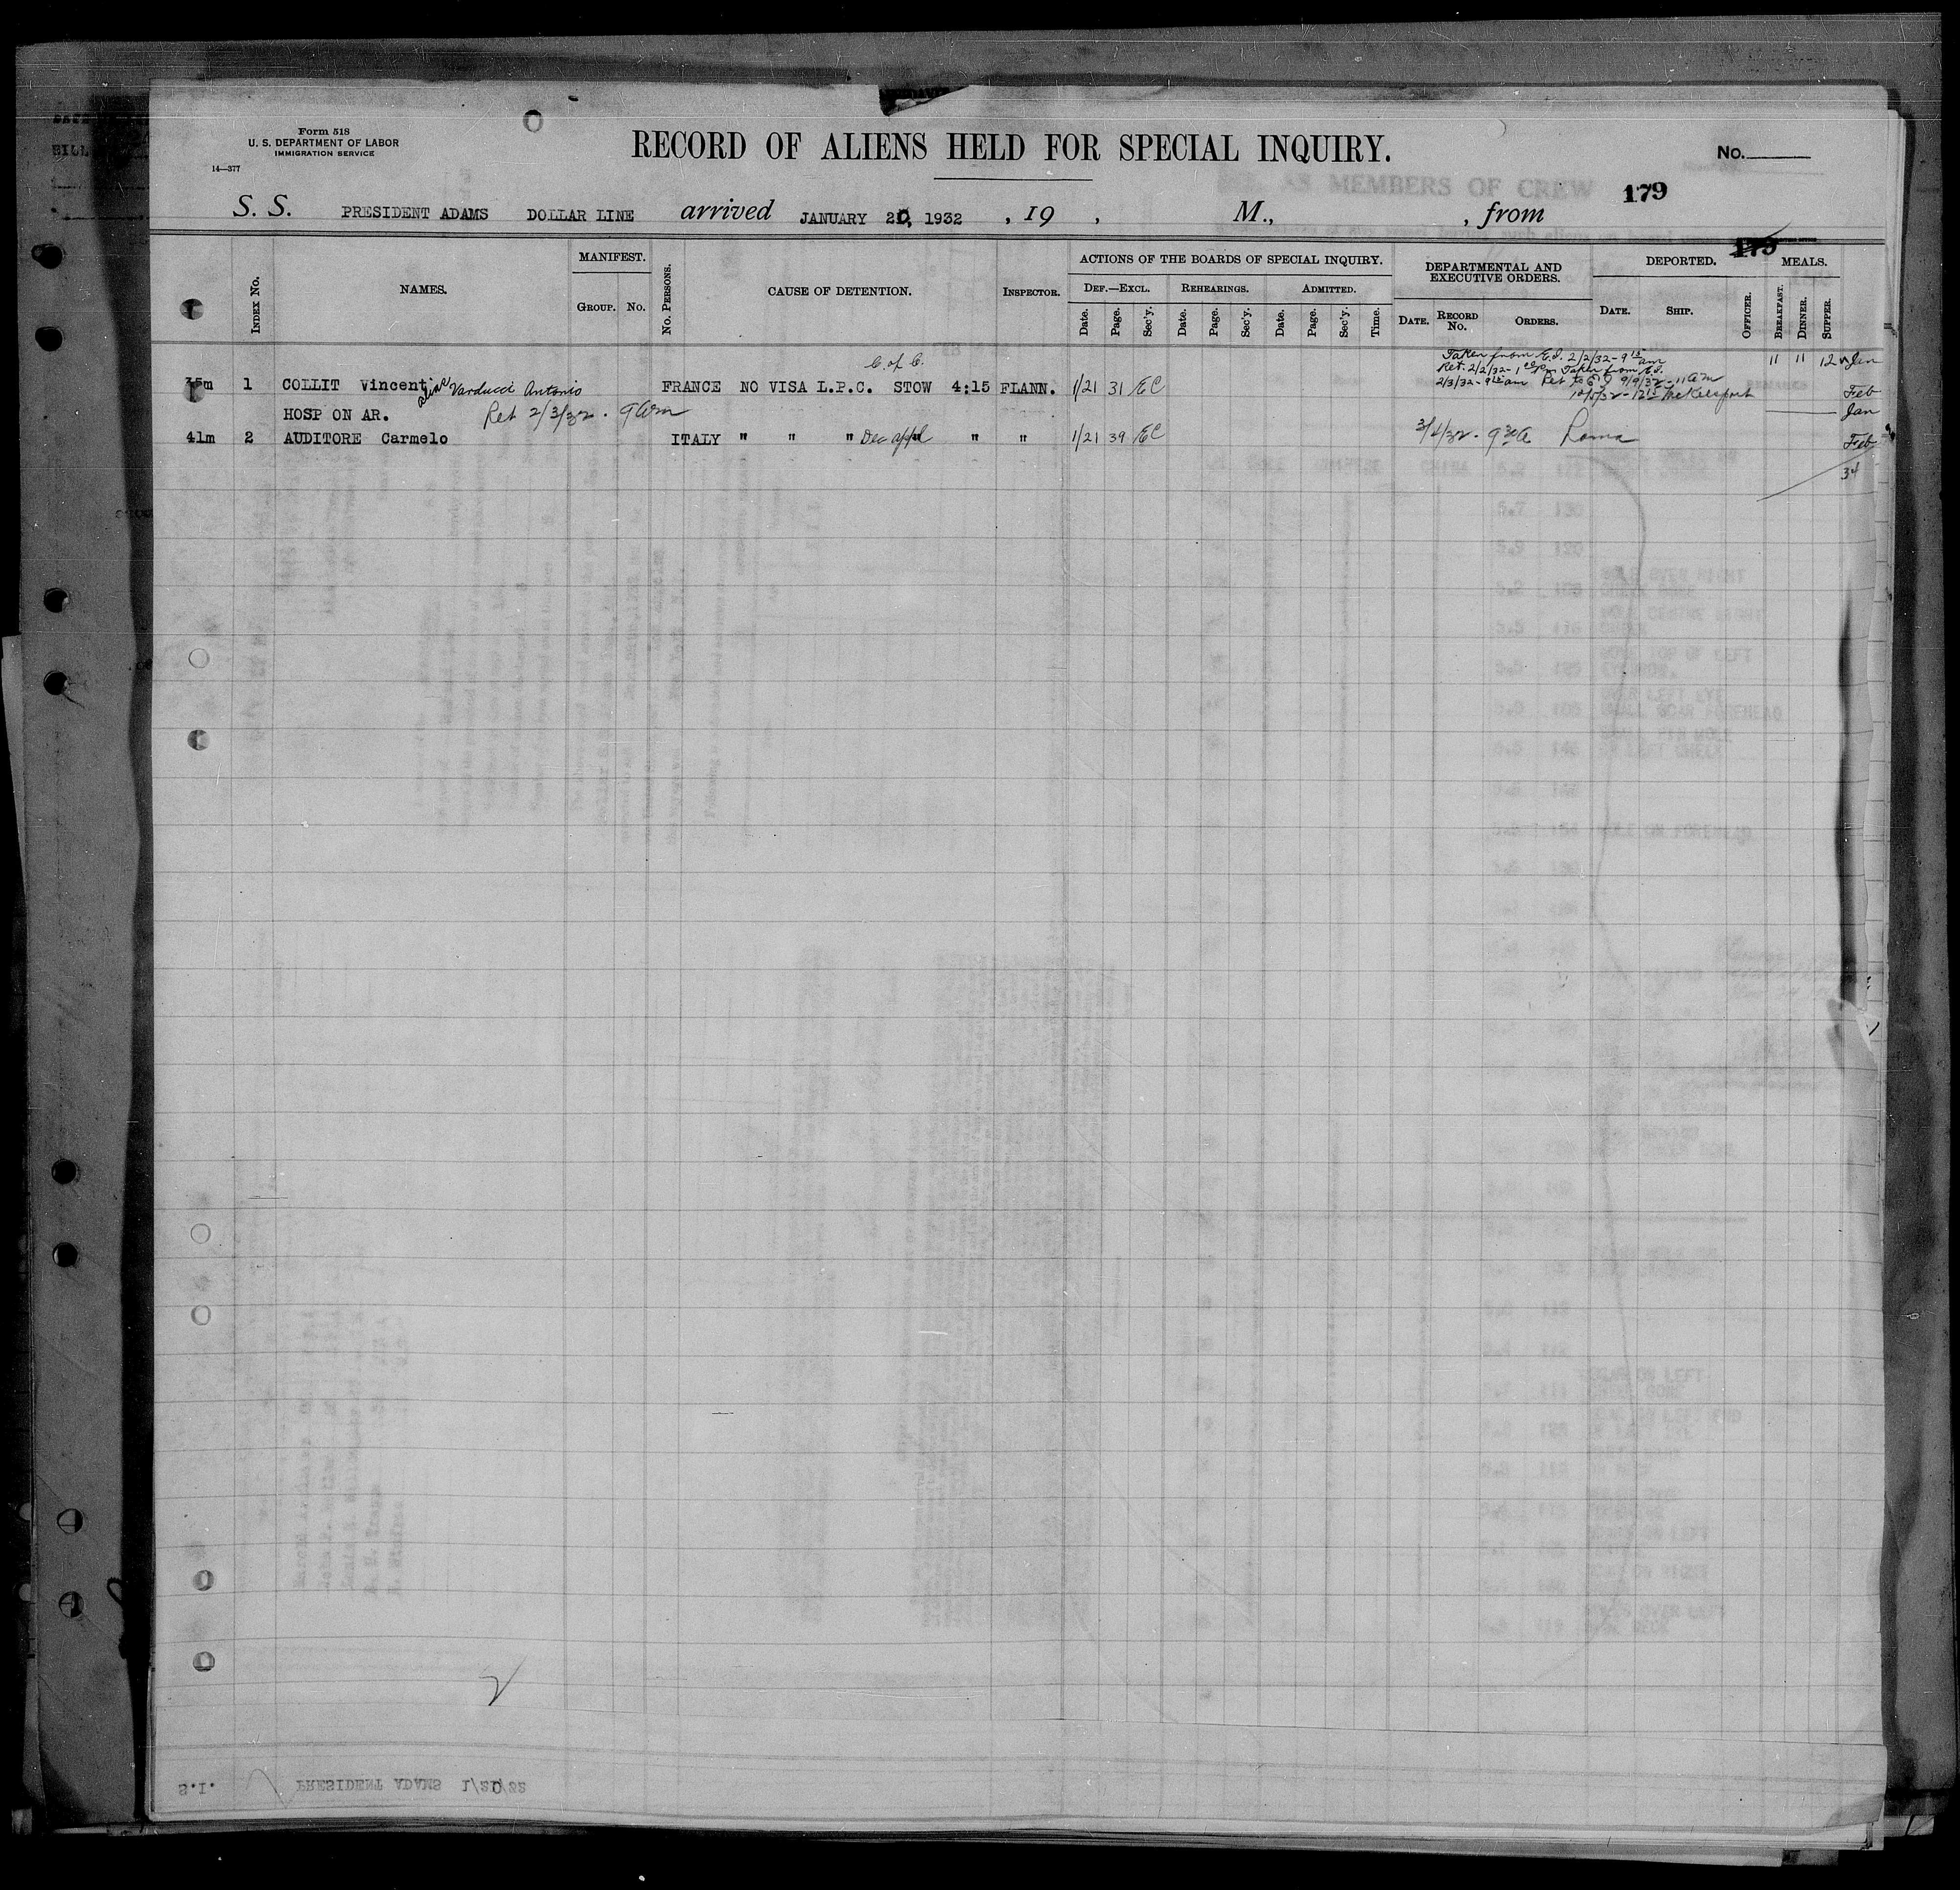 Form 518
U. S. DEPARTMENT OF LABOR
IMMIGRATION SERVICE
14—377
RECORD OF ALIENS HELD FOR SPECIAL INQUIRY.
No.
179
S. S. PRESIDENT ADAMS DOLLAR LINE arrived JANUARY 20, 1932 , 19 , M., , from
179
INDEX No. NAMES. MANIFEST. No. PERSONS. CAUSE OF DETENTION. INSPECTOR. ACTIONS OF THE BOARDS OF SPECIAL INQUIRY. DEPARTMENTAL AND EXECUTIVE ORDERS. DEPORTED. MEALS.
GROUP. No. DEF.—EXCL. REHEARINGS. ADMITTED.
Date. Page. Sec'y. Date. Page. Sec'y. Date. Page. Sec'y. Time. DATE. RECORD No. ORDERS. DATE. SHIP. OFFICER. BREAKFAST. DINNER. SUPPER.
C. of C.
Taken from E.I. 2/2/32 - 9 15 am 11 11 12 Jan
Ret. 2/2/32 - 1 pm Taken from E.I.
35m 1 COLLIT Vincent alias Varducci Antonio FRANCE NO VISA L.P.C. STOW 4:15 FLANN. 1/21 31 EC
2/3/32 - am Ret to E I 9/9/32 - 11 am
10/5/32 - McKeesport Feb
HOSP ON AR. Ret 2/3/32 . 9 am Jan
41m 2 AUDITORE Carmelo ITALY " " " Dec appl " " 1/21 39 EC 3/4/32 - 9 30 A Roma Feb
34
S.I. PRESIDENT ADAMS 1/20/32